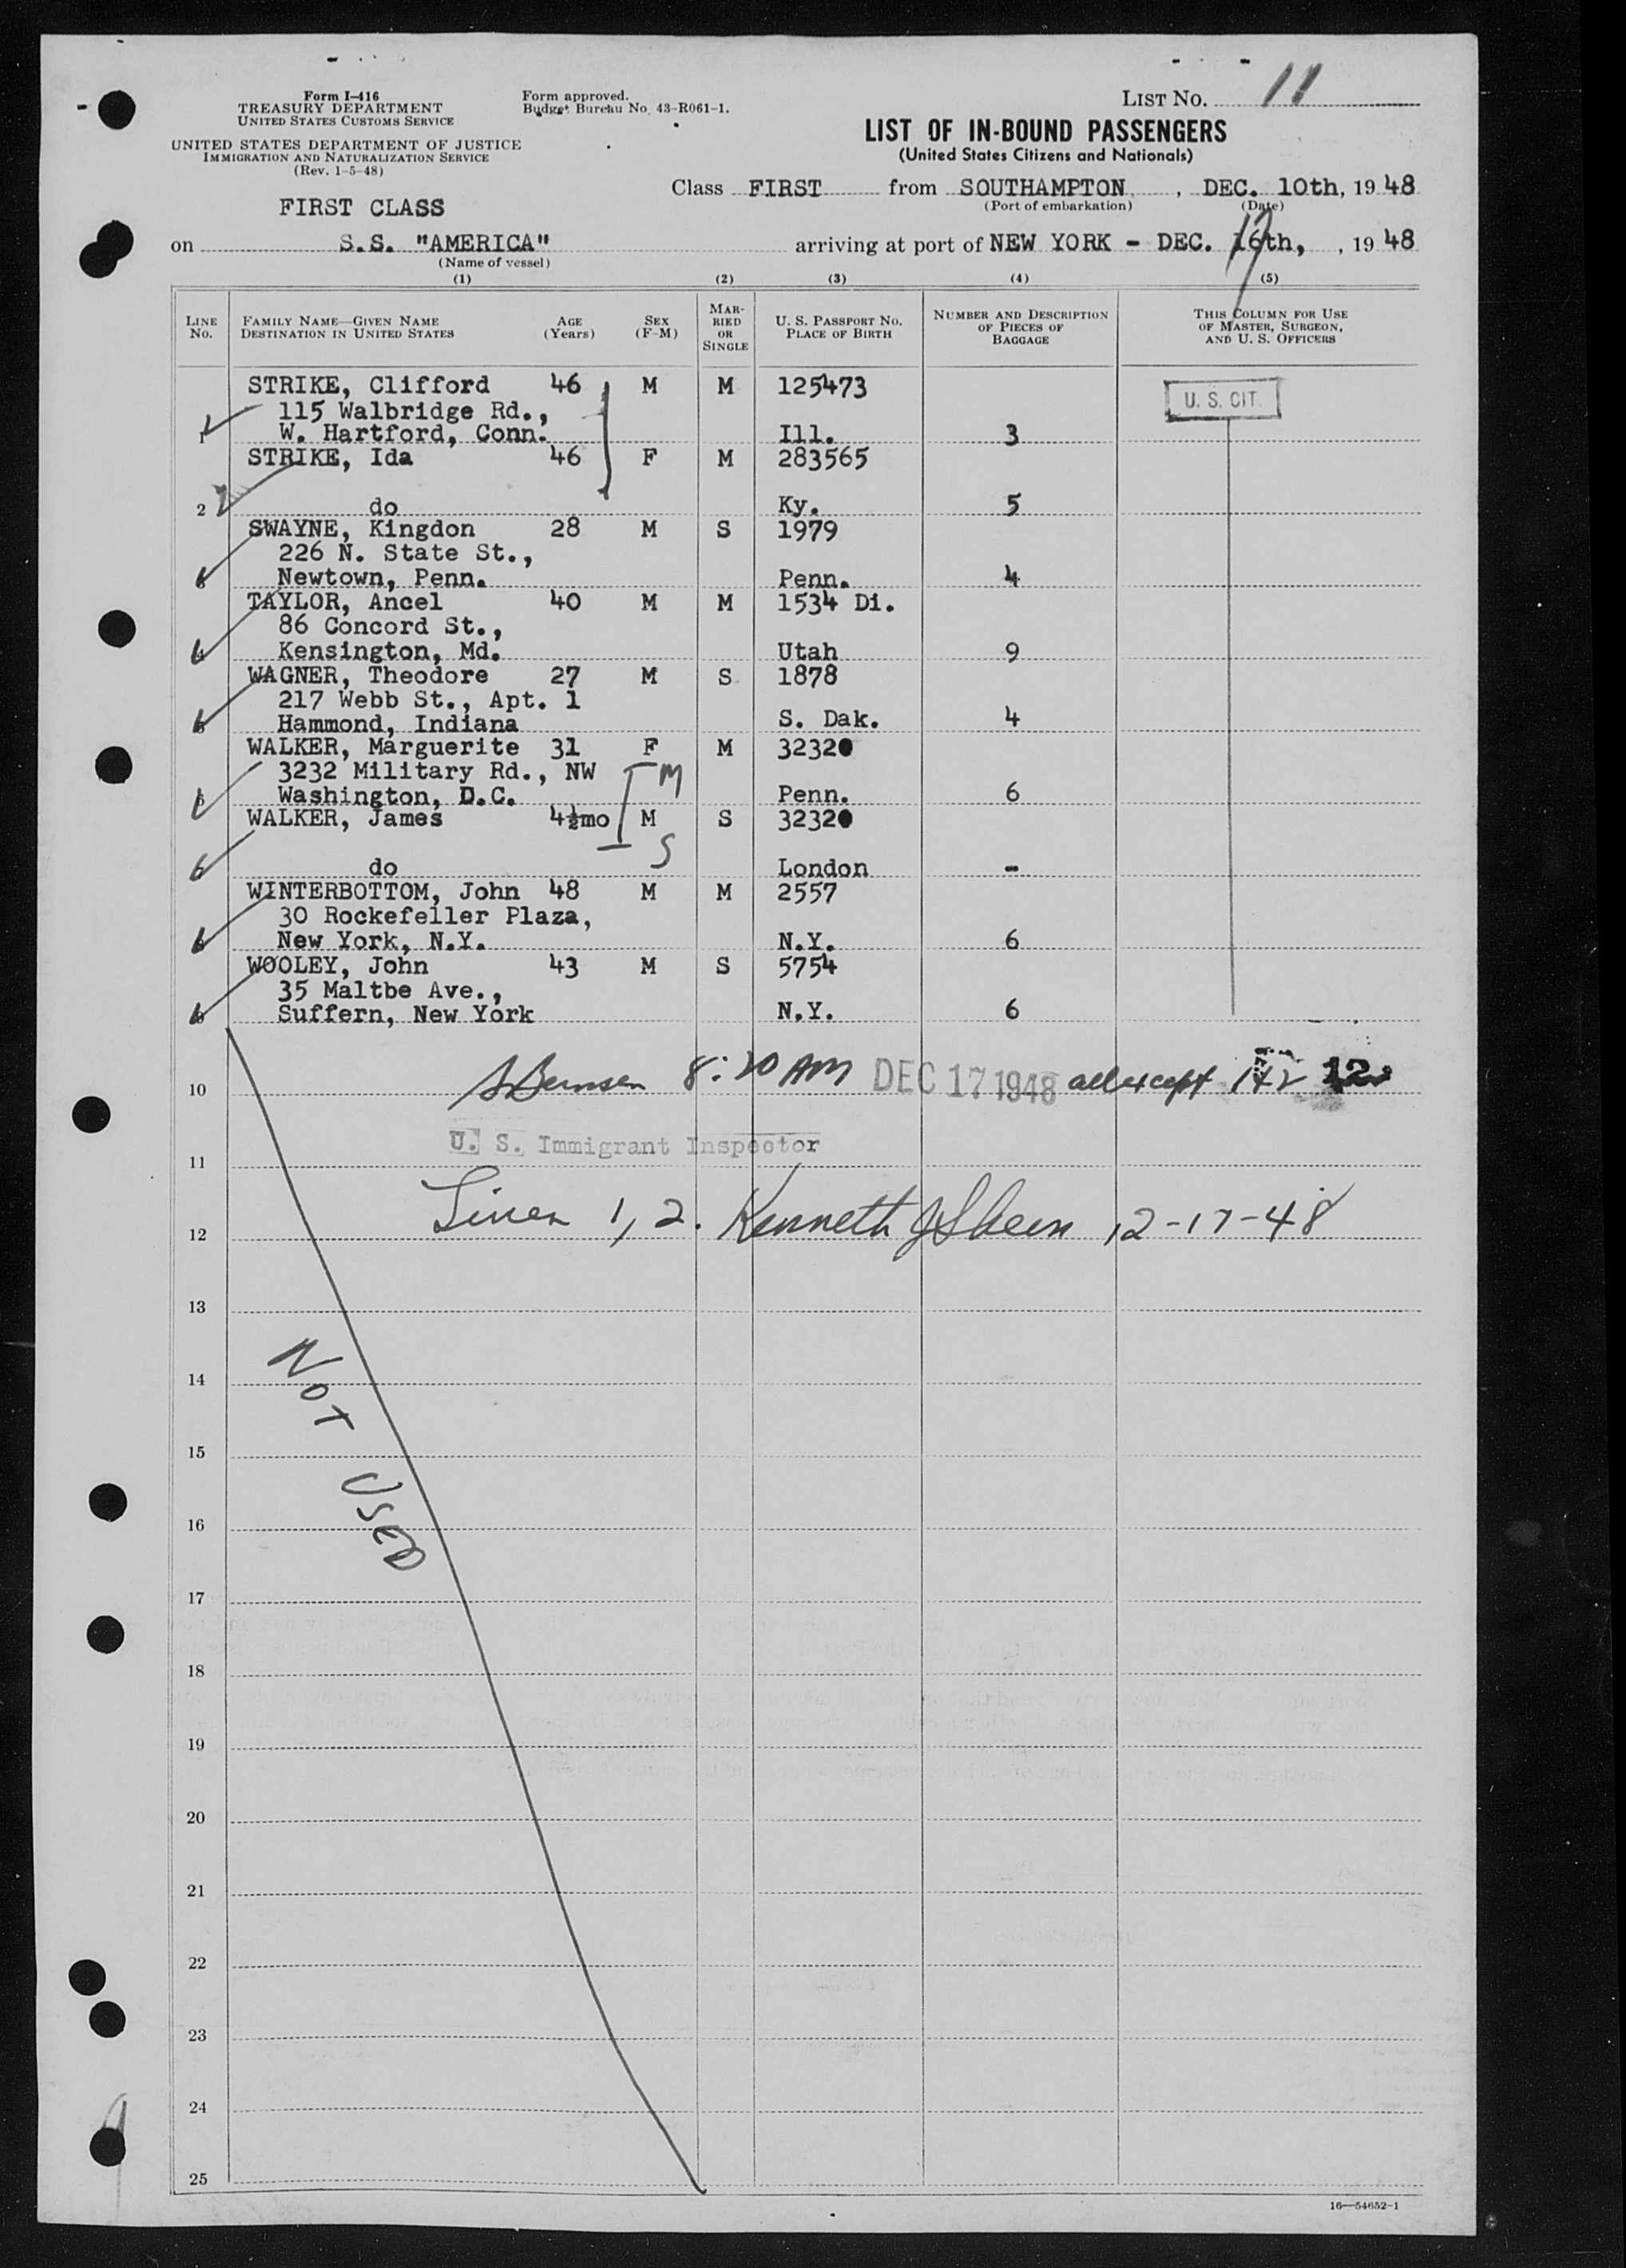 Form I-416
TREASURY DEPARTMENT
UNITED STATES CUSTOMS SERVICE
UNITED STATES DEPARTMENT OF JUSTICE
IMMIGRATION AND NATURALIZATION SERVICE
(Rev. 1-5-48)
Form approved.
Budget Bureau No. 43-R061-1.
LIST NO. 11
LIST OF IN-BOUND PASSENGERS
(United States Citizens and Nationals)
Class FIRST from SOUTHAMPTON, DEC. 10th, 1948
(Port of embarkation) (Date)
FIRST CLASS
on S.S. "AMERICA" arriving at port of NEW YORK - DEC. 16th, 17, 1948
(Name of vessel)
(1) (2) (3) (4) (5)
LINE NO. FAMILY NAME—GIVEN NAME DESTINATION IN UNITED STATES AGE (Years) SEX (F-M) MARRIED OR SINGLE U. S. PASSPORT NO. PLACE OF BIRTH NUMBER AND DESCRIPTION OF PIECES OF BAGGAGE THIS COLUMN FOR USE OF MASTER, SURGEON, AND U. S. OFFICERS
STRIKE, Clifford 46 M M 125473 U. S. CIT.
115 Walbridge Rd.,
1 W. Hartford, Conn. Ill. 3
STRIKE, Ida 46 F M 283565
2 do Ky. 5
SWAYNE, Kingdon 28 M S 1979
226 N. State St.,
3 Newtown, Penn. Penn. 4
TAYLOR, Ancel 40 M M 1534 Di.
86 Concord St.,
4 Kensington, Md. Utah 9
WAGNER, Theodore 27 M S 1878
217 Webb St., Apt. 1
5 Hammond, Indiana S. Dak. 4
WALKER, Marguerite 31 F M 32320
3232 Military Rd., NW M
Washington, D.C. Penn. 6
WALKER, James 4½mo M S 32320
S
do London -
WINTERBOTTOM, John 48 M M 2557
30 Rockefeller Plaza,
New York, N.Y. N.Y. 6
WOOLEY, John 43 M S 5754
35 Maltbe Ave.,
Suffern, New York N.Y. 6
10 8:20 AM DEC 17 1948 all except 1+2 12
U. S. Immigrant Inspector
11
Lines 1, 2. Kenneth J 12-17-48
12
13
NOT USED
14
15
16
17
18
19
20
21
22
23
24
25
16—54652-1